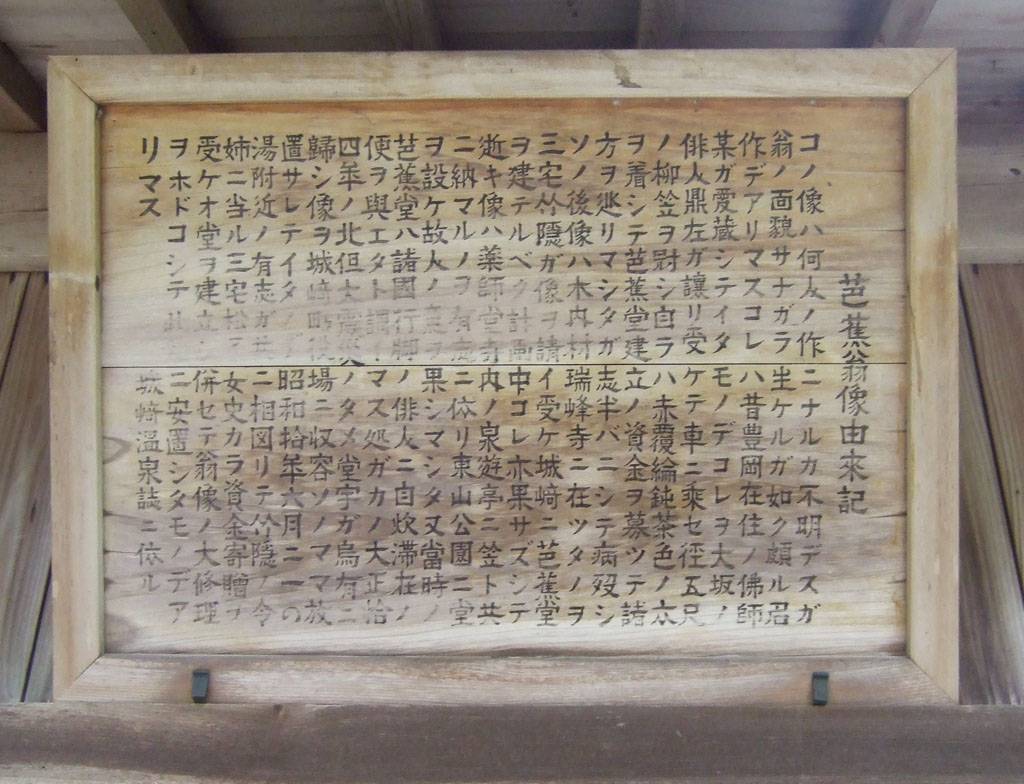 芭蕉翁像由来記
コノ像ハ何人ノ作ニナルカ不明デスガ
翁ノ面貌サナガラ生ケルガ如ク頗ル名
作デアリマスコレハ昔豊岡在住ノ佛師
某ガ愛蔵シテイタモノデコレヲ大坂ノ
俳人鼎左ガ讓リ受ケテ車ニ乗セ径五尺
ノ柳笠ヲ冠シ自ラハ赤覆綸鈍茶色ノ衣
ヲ着シテ芭蕉堂建立ノ資金ヲ募ツテ諸
方ヲ巡リマシタガ志半バニシテ病歿シ
ソノ後像ハ木内村瑞峰寺ニ在ツタノヲ
三宅竹隠ガ像ヲ請イ受ケ城崎ニ芭蕉堂
ヲ建テルベク計画中コレ亦果サズシテ
逝キ像ハ薬師堂寺内ノ泉遊亭ニ笠ト共
ニ納マルノヲ有志ニ依リ東山公園ニ堂
ヲ設ケ故人ノ意ヲ果シマシタ又當時ノ
芭蕉堂ハ諸國行脚ノ俳人ニ自炊滞在ノ
便ヲ與エタトイマス処ガカノ大正拾
四年ノ北但大震災ノタメ堂宇ガ烏有ニ
歸シ像ヲ城崎町役場ニ収容ソノママ放
置サレテイタノデ昭和拾年六月二一の
湯附近ノ有志ガ共ニ相図リテ竹隠ノ令
姉ニ当ル三宅松ヲ女史カラ資金寄贈ヲ
受ケオ堂ヲ建立併セテ翁像ノ大修理
ヲホドコシテ此ニ安置シタモノデア
リマス 城崎温泉誌ニ依ル